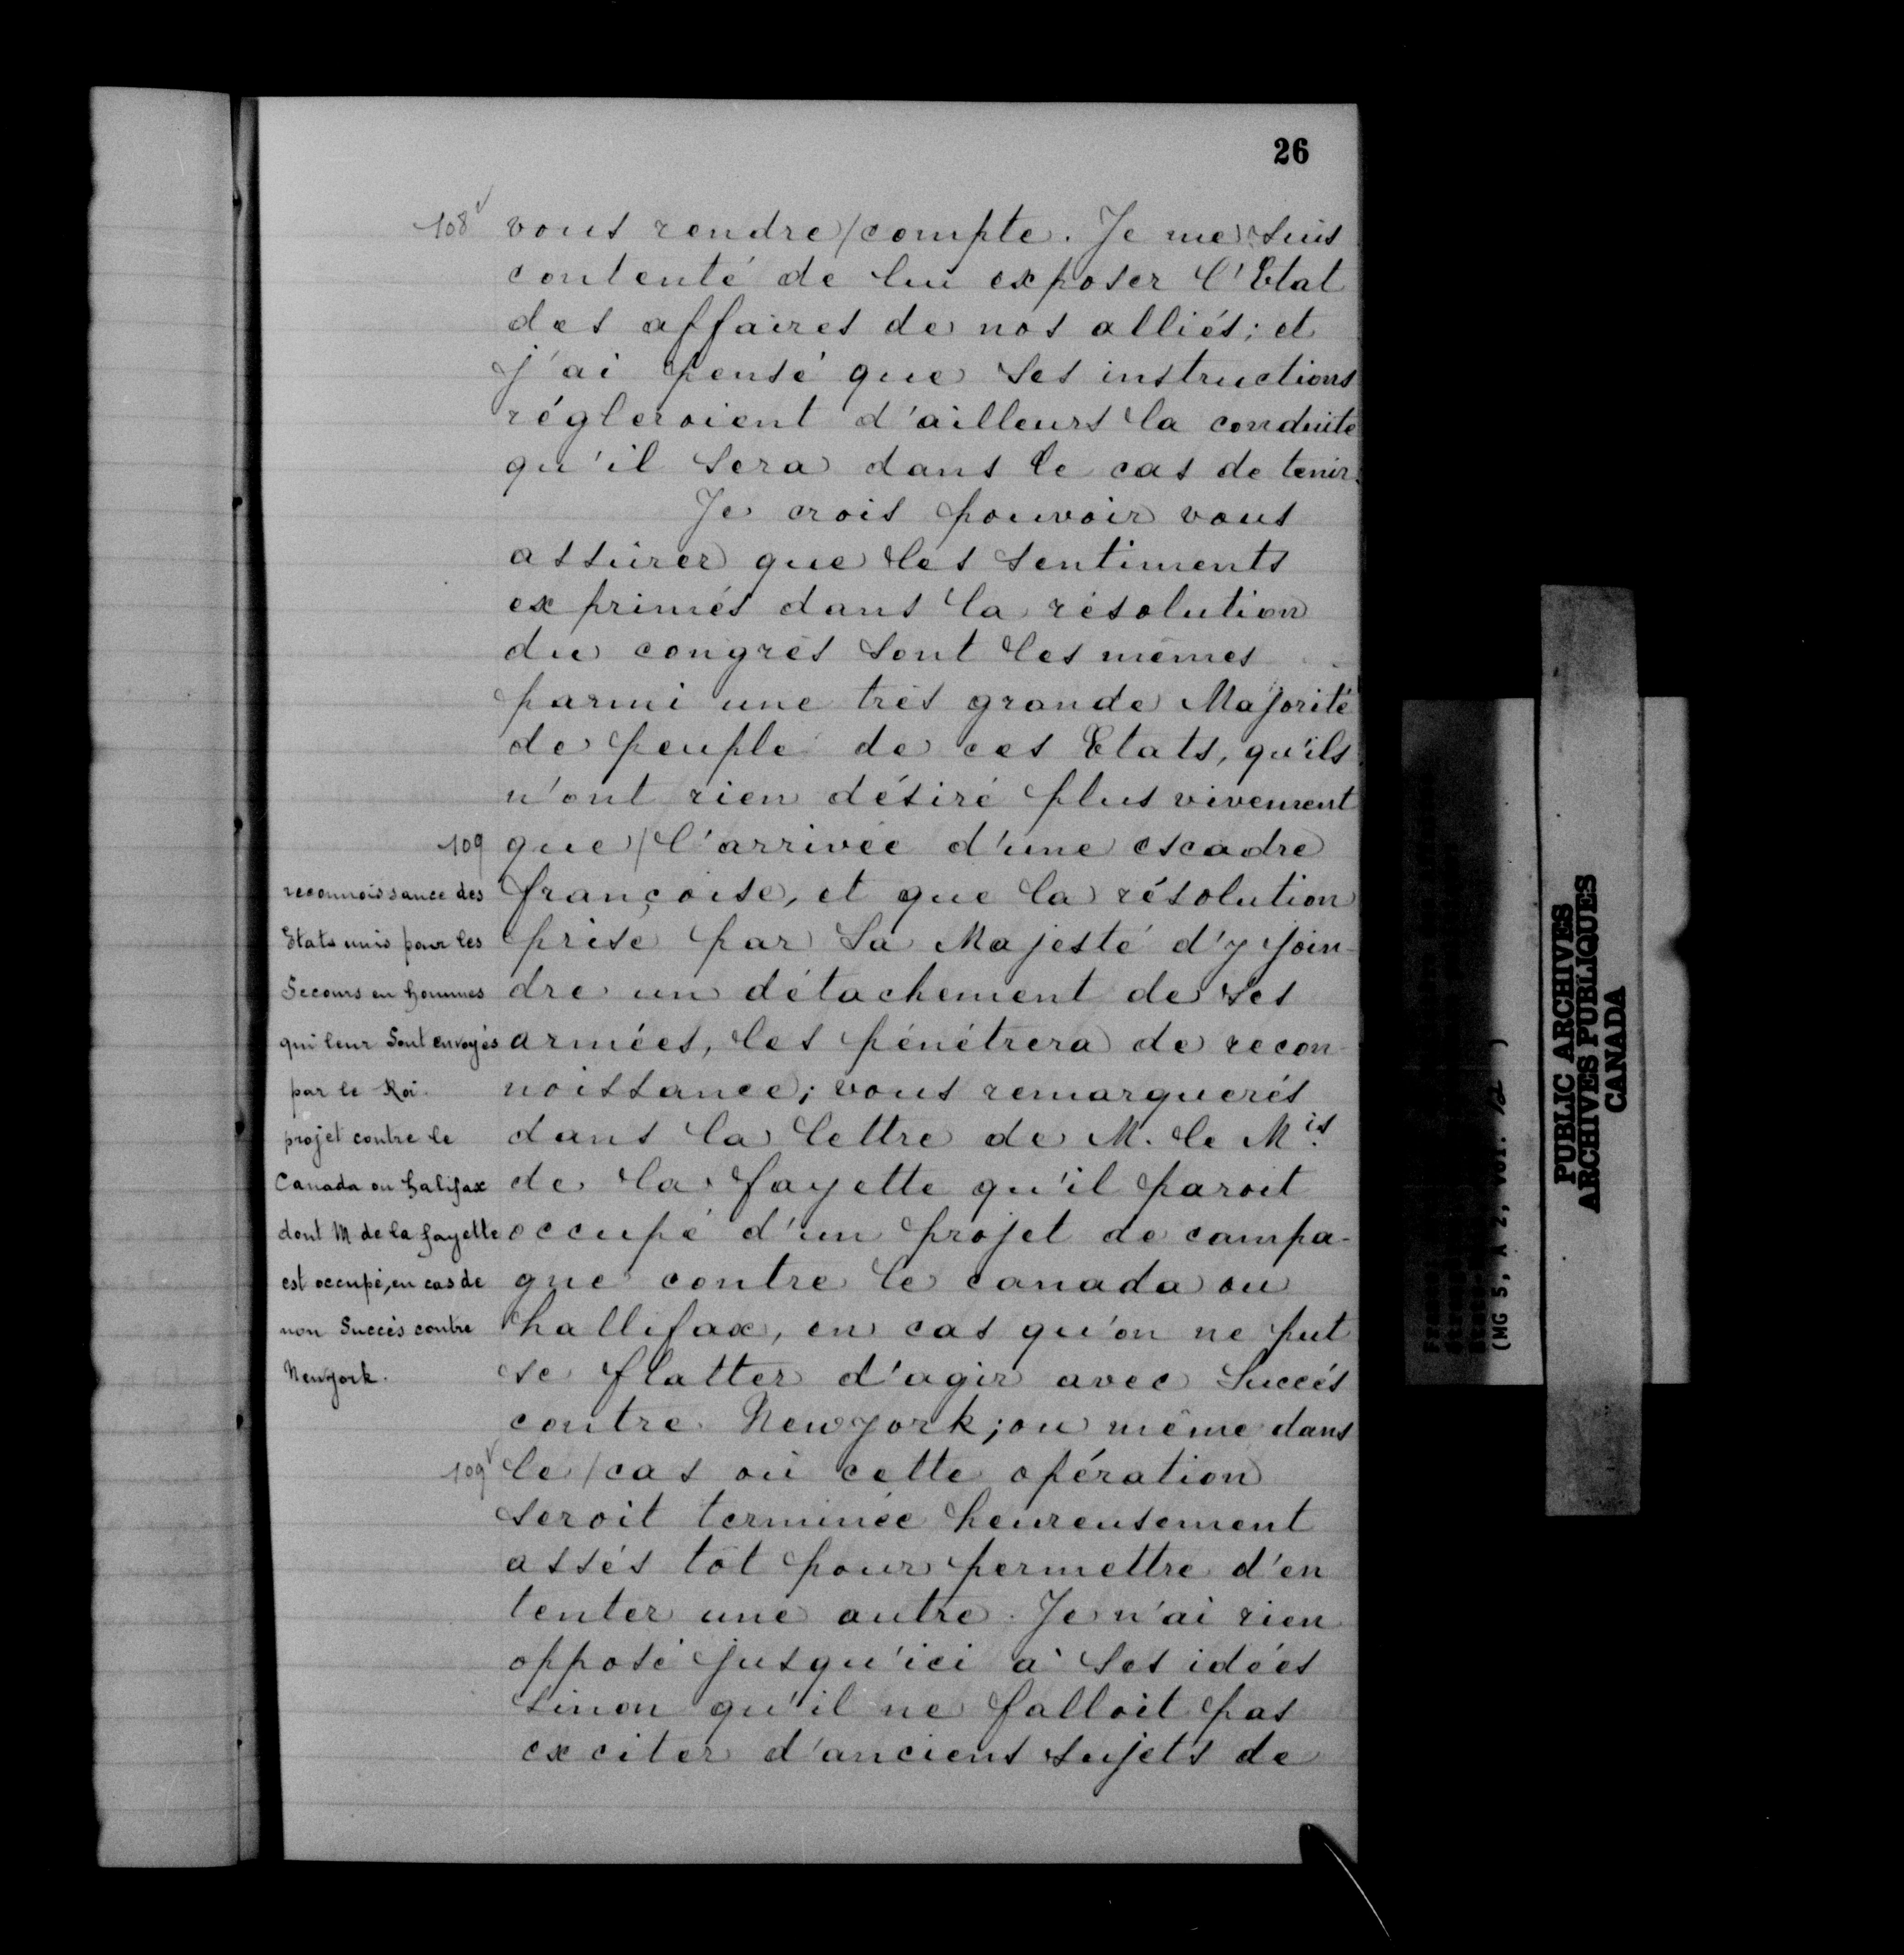 26
108v vous rendre/compte. Je me suis
contenté de lui exposer l'Etat
des affaires de nos alliés; et
j'ai pensé que ses instructions
régleroient d'ailleurs la conduite
qu'il sera dans le cas de tenir.
Je crois pouvoir vous
assurer que les sentiments
exprimés dans la résolution
du congrès sont les mêmes
parmi une très grande Majorité
de peuple de ces Etats, qu'ils
n'ont rien désiré plus vivement
109 que/l'arrivée d'une escadre
françoise, et que la résolution
prise par Sa Majesté d'y join-
dre un détachement de ses
armées, les pénétrera de recon-
noissance; vous remarquerés
dans la lettre de M. le Mis.
de la fayette qu'il paroit
occupé d'un projet de campa-
gne contre le canada ou
hallifax, en cas qu'on ne put
se flatter d'agir avec Succés
contre Newyork; ou même dans
109v le/cas où cette opération
seroit terminée heureusement
assés tôt pour permettre d'en
tenter une autre. Je n'ai rien
opposé jusqu'ici à ses idées
sinon qu'il ne falloit pas
exciter d'anciens sujets de
reconnoissance des
Etats unis pour les
Secours en hommes
qui leur Sont envoyés
par le Roi.
projet contre le
Canada ou halifax
dont M de la fayette
est occupé, en cas de
non Succès contre
Newyork.
(MG 5, A 2, vol. 12)
PUBLIC ARCHIVES
ARCHIVES PUBLIQUES
CANADA